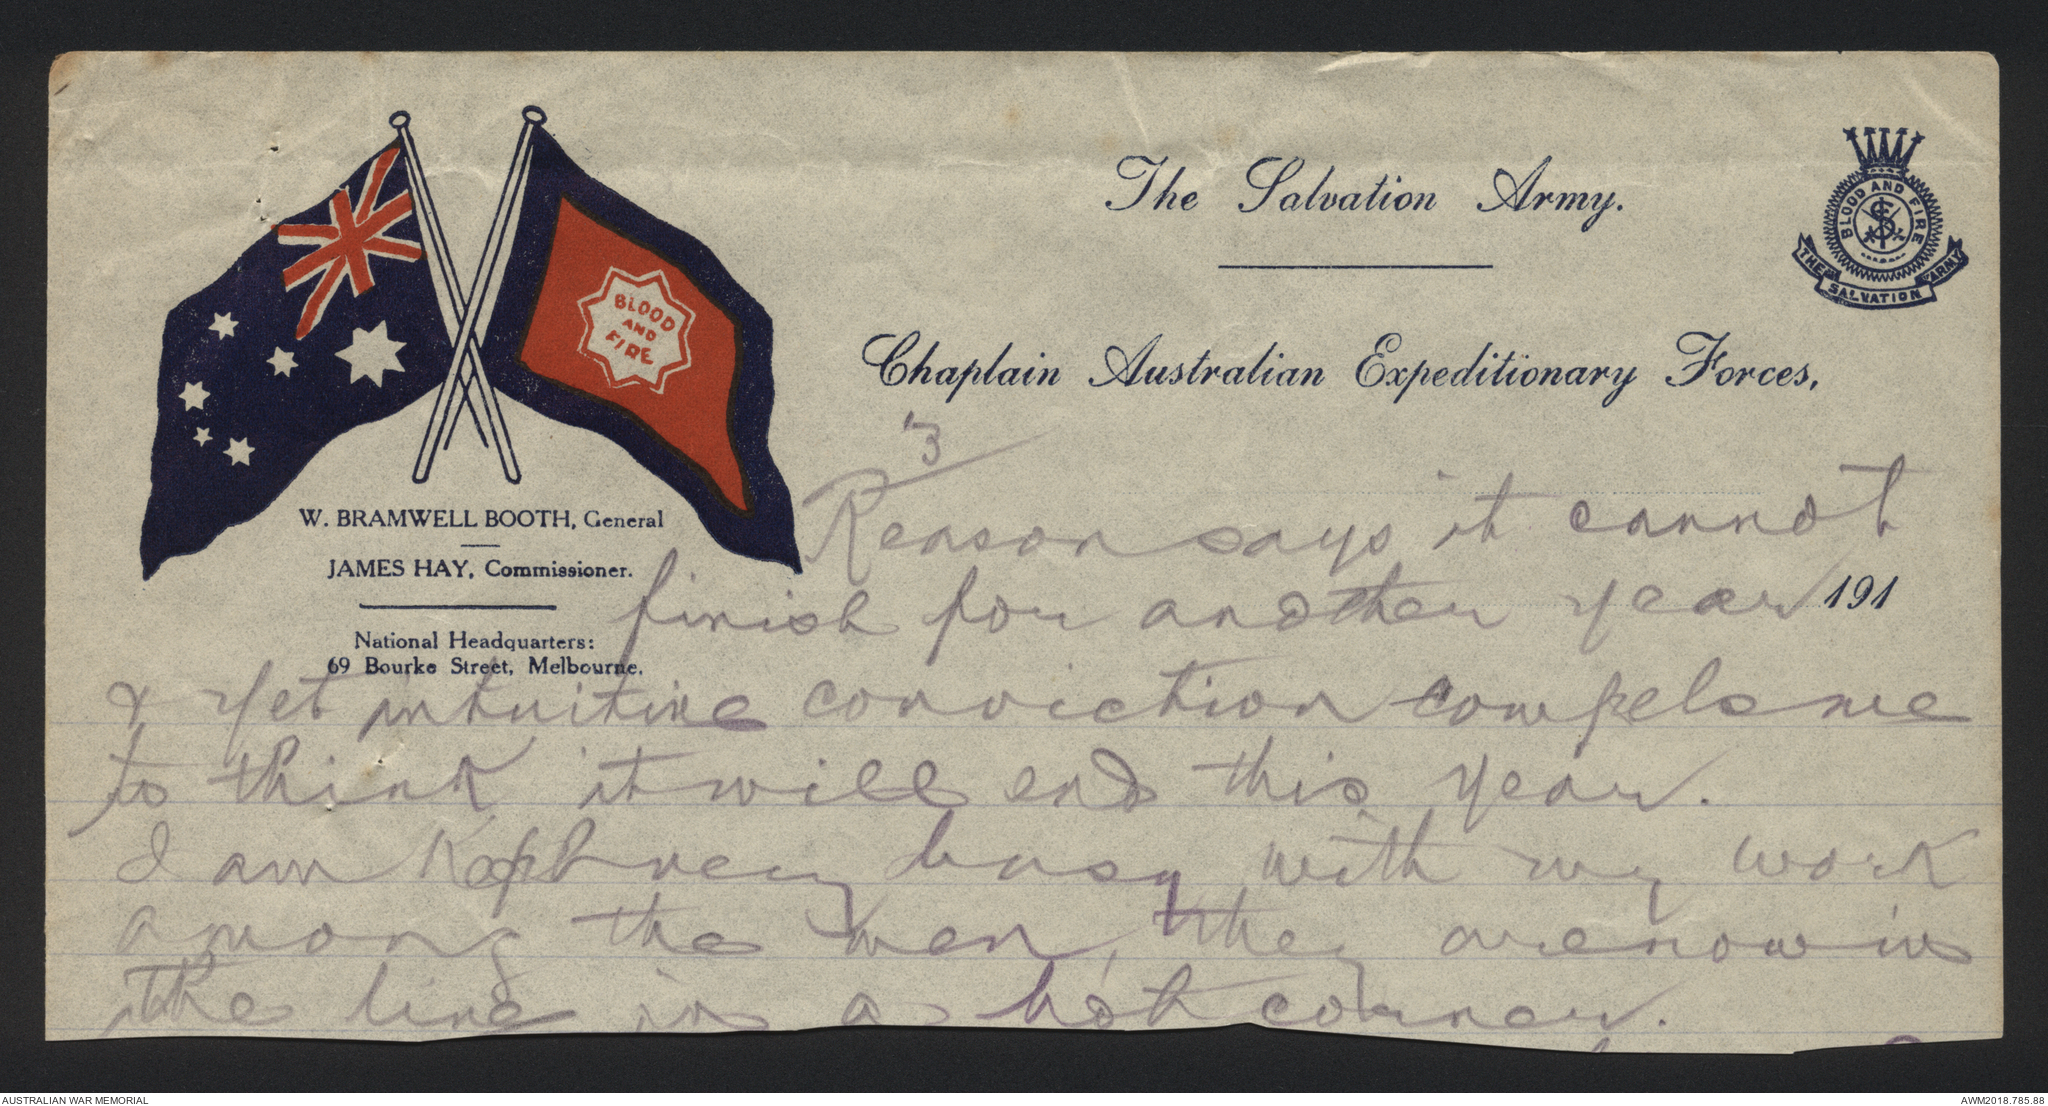 The Salvation Army.
BLOOD AND FIRE
THE SALVATION ARMY
BLOOD
AND
FIRE
Chaplain Australian Expeditionary Forces,
W. BRAMWELL BOOTH, General
JAMES HAY, Commissioner.
National Headquarters:
69 Bourke Street, Melbourne.
191
3
Reason says it cannot
finish for another year
& yet intuitive conviction compels me
to think it will end this year.
I am Kept very busy with my work
among the men, they are now in
the line in a hot corner.
AUSTRALIAN WAR MEMORIAL
AWM2018.785.88